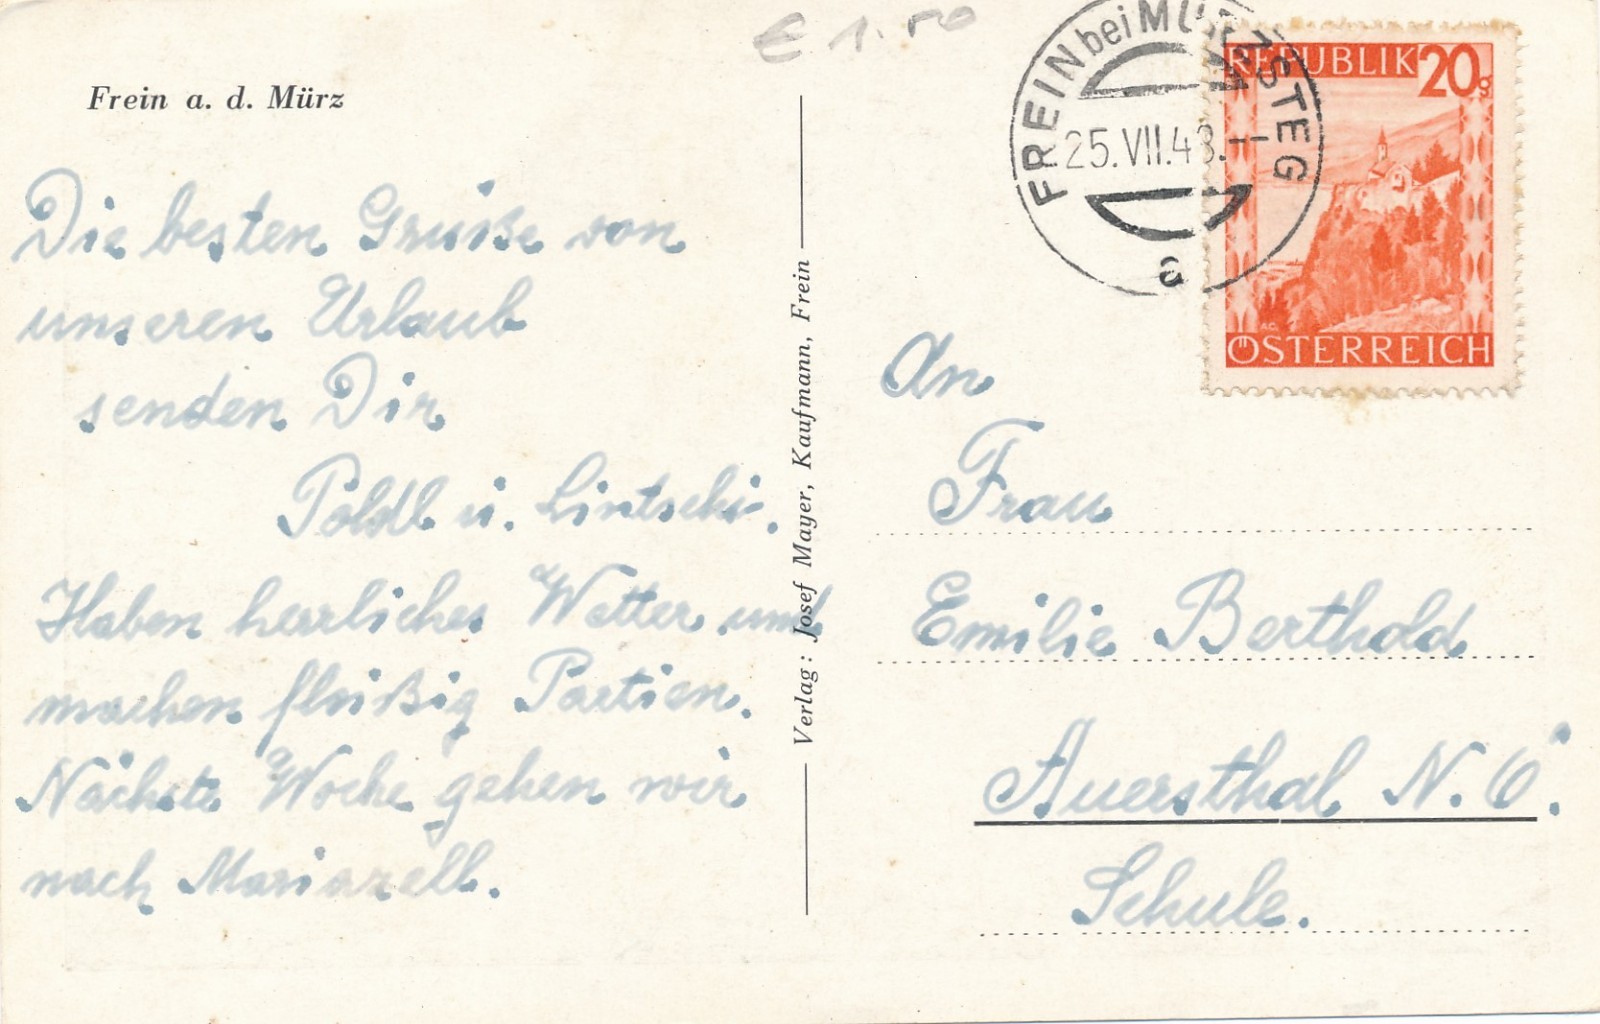 € 1.50
Frein a. d. Mürz
Die besten Grüße von
unseren Urlaub
senden Dir
Poldl u. Lintschi.
Haben herrliches Wetter und
machen fleißig Partien.
Nächste Woche gehen wir
nach Mariazell.
Verlag: Josef Mayer, Kaufmann, Frein
FREIN bei MÜRZSTEG
25.VII.48.--
a
REPUBLIK 20g
ÖSTERREICH
An
Frau
Emilie Berthold
Auersthal N.Ö.
Schule.